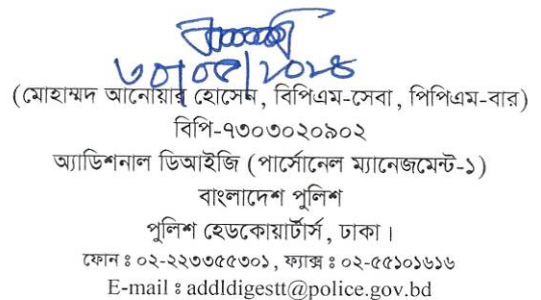 ৩০|০৫|২০২৪
(মোহাম্মদ আনোয়ার হোসেন, বিপিএম-সেবা, পিপিএম-বার)
বিপি-৭৩০৩০২০৯০২
অ্যাডিশনাল ডিআইজি (পার্সোনেল ম্যানেজমেন্ট-১)
বাংলাদেশ পুলিশ
পুলিশ হেডকোয়ার্টার্স, ঢাকা।
ফোন ঃ ০২-২২৩৩৫৫৩০১, ফ্যাক্স ঃ ০২-৫৫১০১৬১৬
E-mail ঃ addldigestt@police.gov.bd